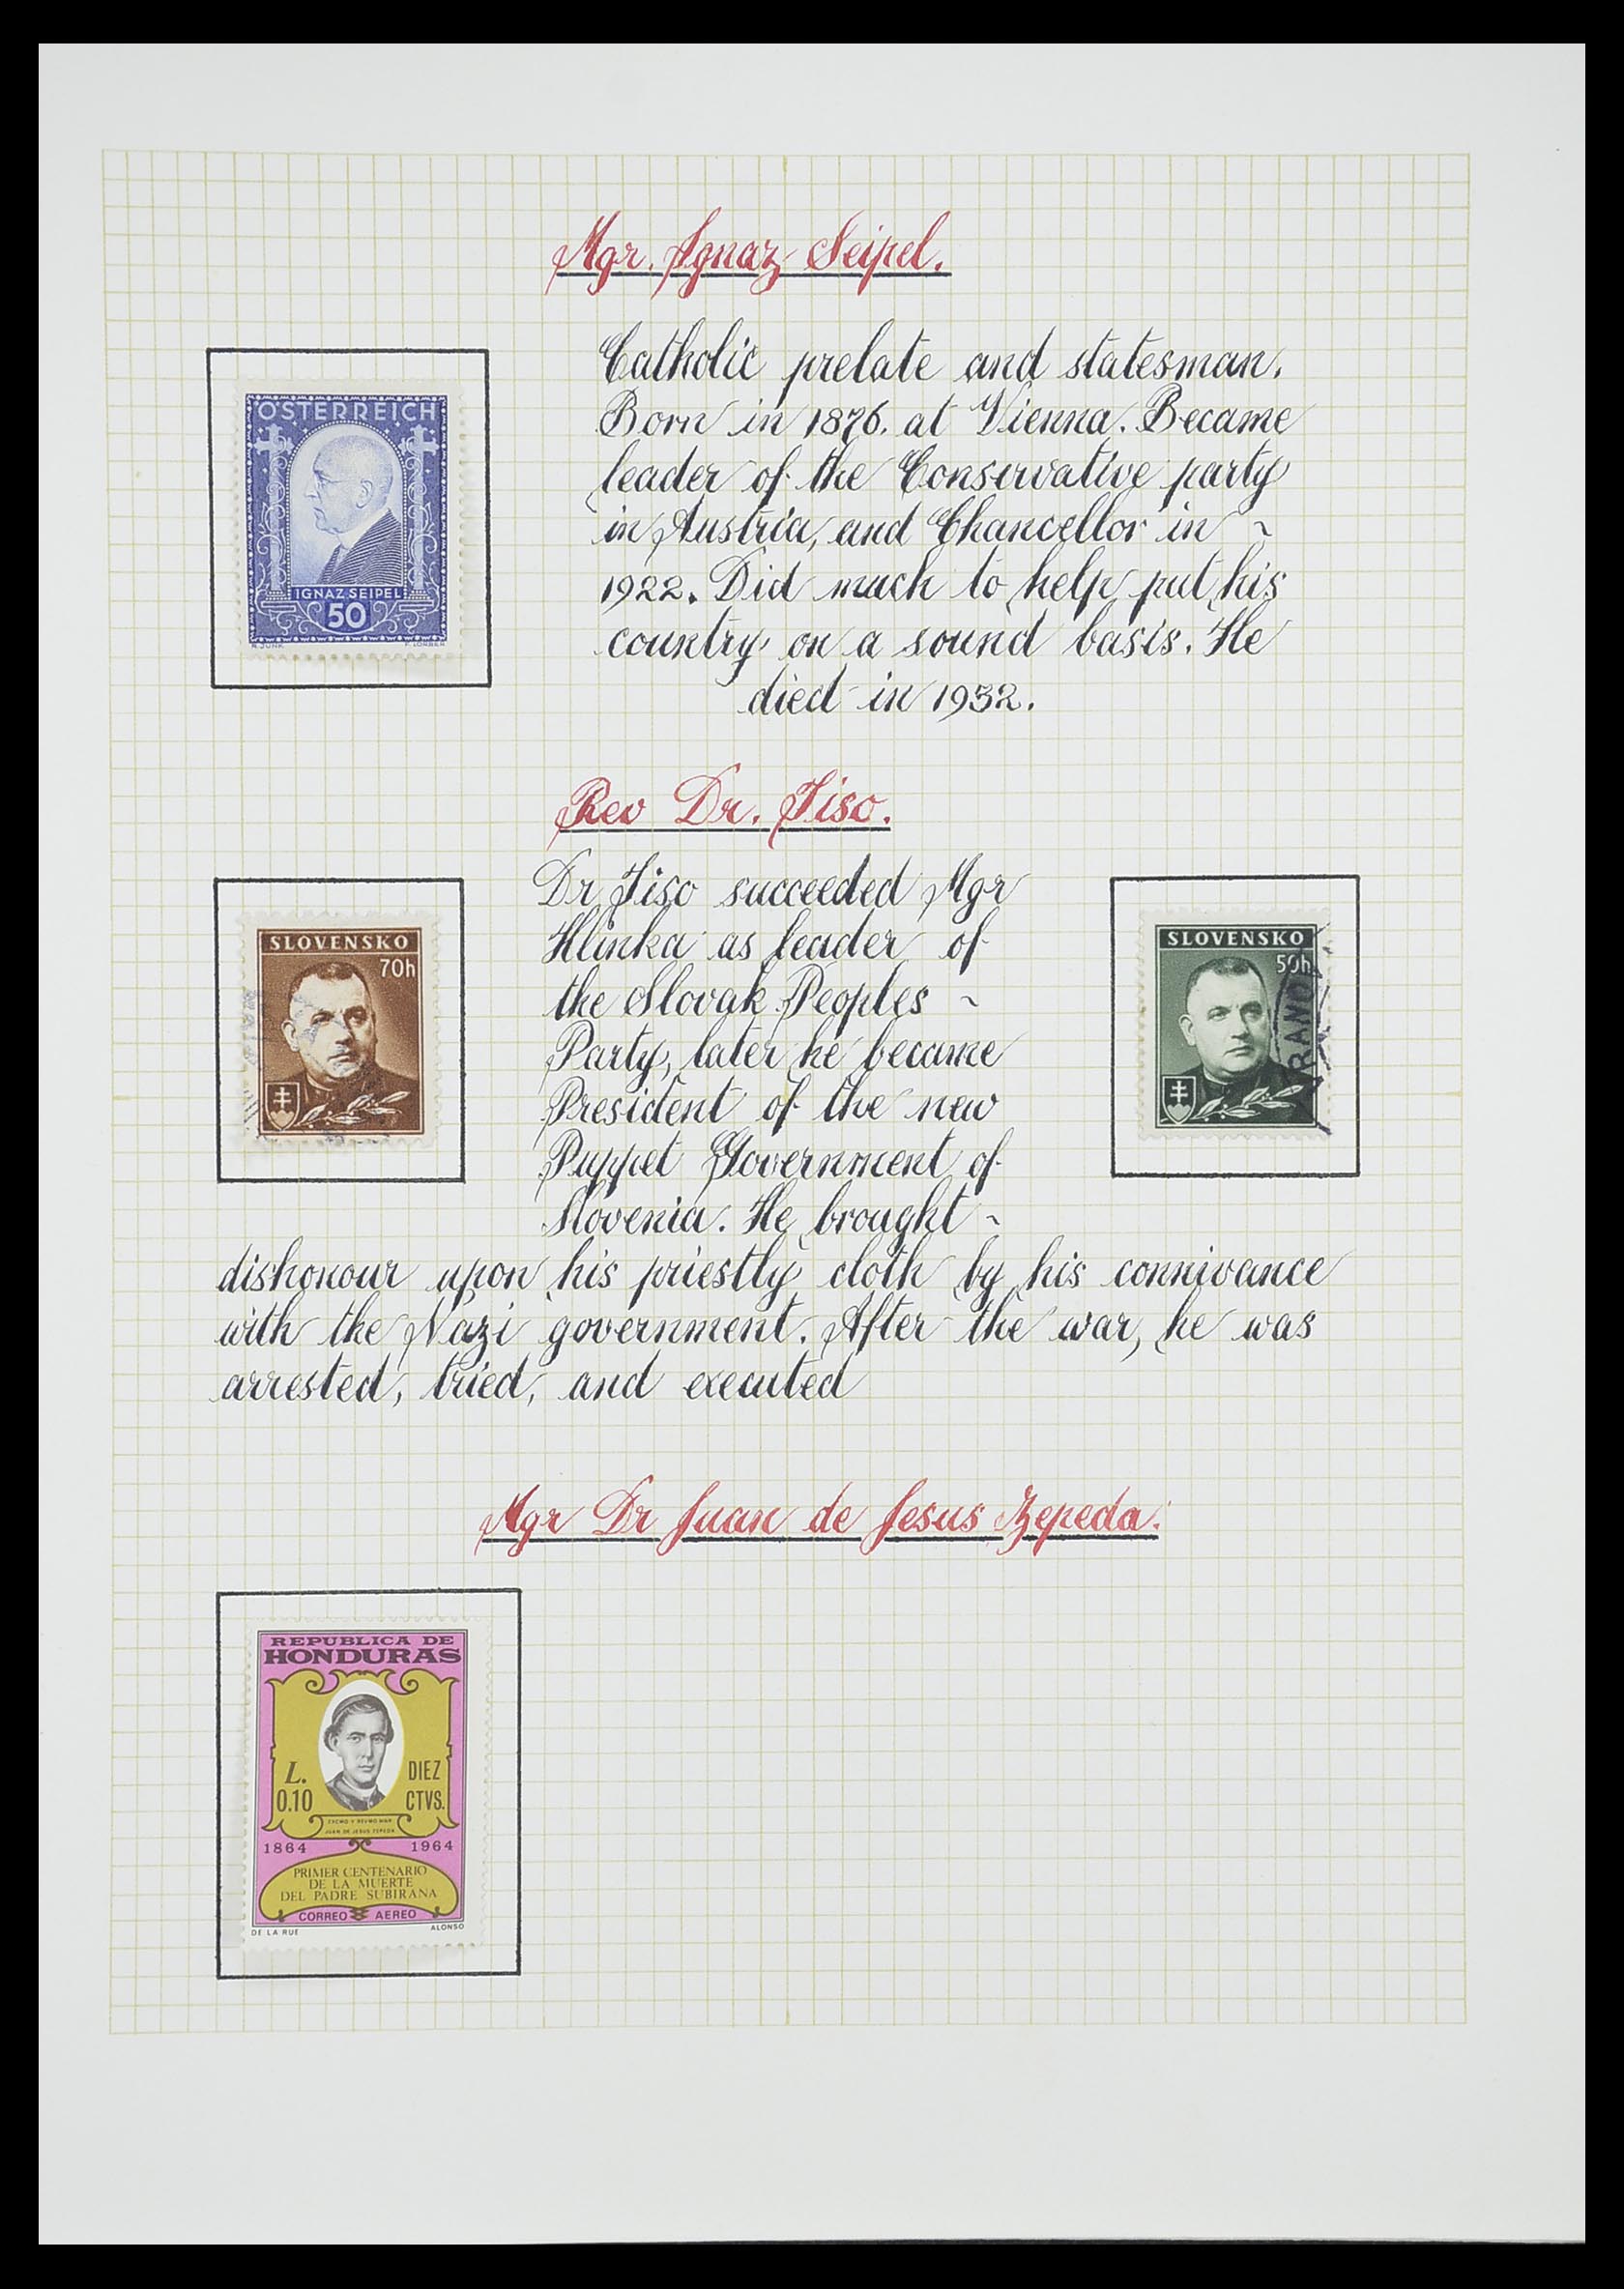 Mgr. Ignaz Seipel.
Catholic prelate and statesman.
Born in 1876. at Vienna. Became
leader of the Conservative party
in Austria, and Chancellor in ~
1922. Did much to help put his
country on a sound basis. He
died in 1932.
ÖSTERREICH
IGNAZ SEIPEL
50
R. JUNK
F. LORBER
Rev Dr. Tiso.
Dr Tiso succeeded Mgr
Hlinka as leader of
the Slovak Peoples ~
Party, later he became
President of the new
Puppet Government of
Slovenia. He brought ~
dishonour upon his priestly cloth by his connivance
with the Nazi government. After the war, he was
arrested, tried, and executed
SLOVENSKO
70h
SLOVENSKO
50h
RANO
Mgr Dr Juan de Jesus Zepeda.
REPUBLICA DE
HONDURAS
L. DIEZ
0.10 CTVS.
EXCMO Y REVMO MNR
JUAN DE JESUS ZEPEDA
1864 1964
PRIMER CENTENARIO
DE LA MUERTE
DEL PADRE SUBIRANA
CORREO AEREO
DE LA RUE ALONSO